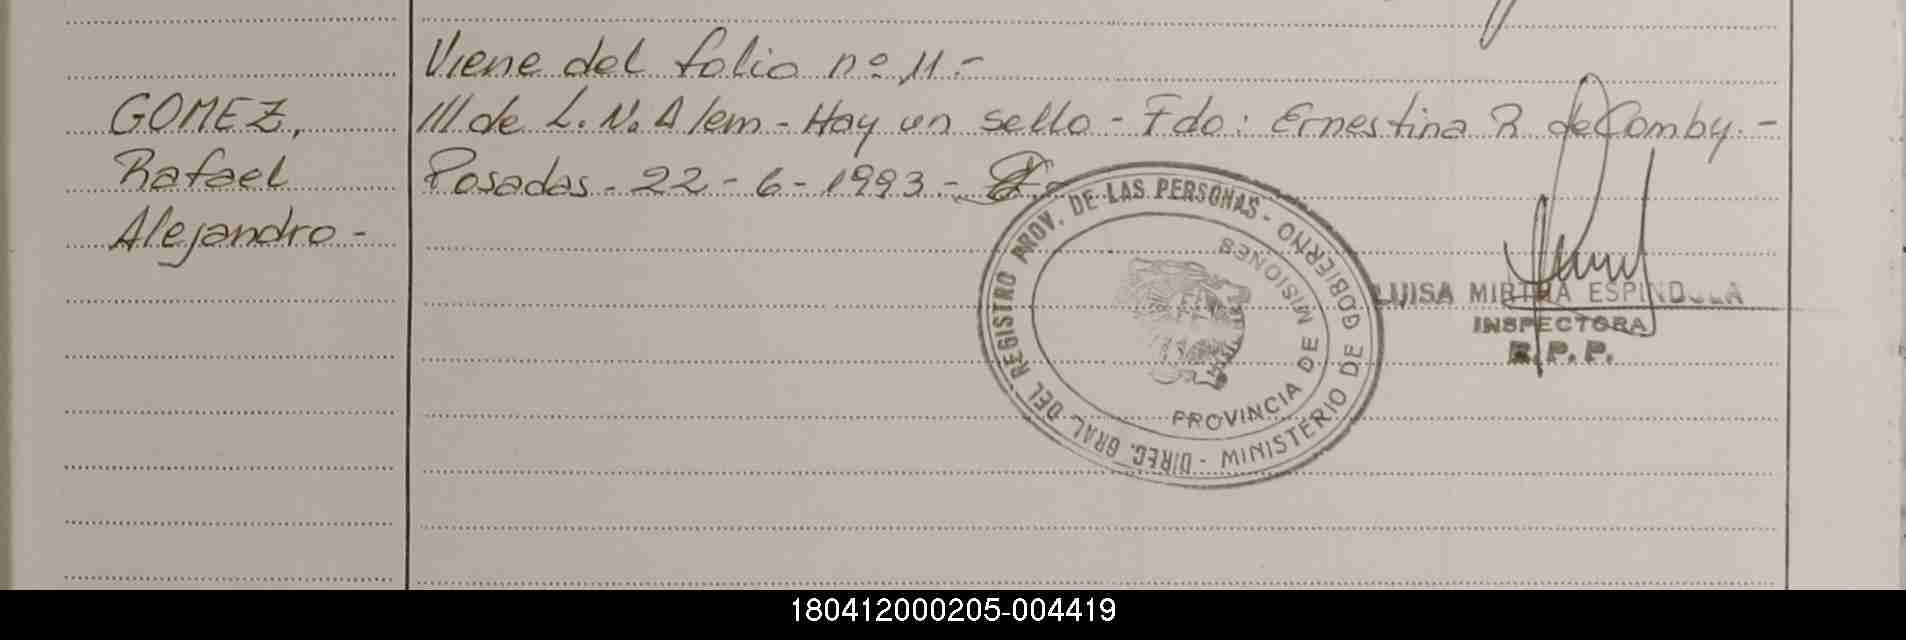 Viene del folio nº 11.-
GOMEZ,
Rafael
Alejandro -
/// de L. N. Alem - Hay un sello - Fdo: Ernestina R de Comby. -
Posadas - 22 - 6 - 1993 -
DIREC. GRAL. DEL REGISTRO PROV. DE LAS PERSONAS -
MINISTERIO DE GOBIERNO -
PROVINCIA DE MISIONES
LUISA MIRTHA ESPINDOLA
INSPECTORA
R.P.P.
180412000205-004419